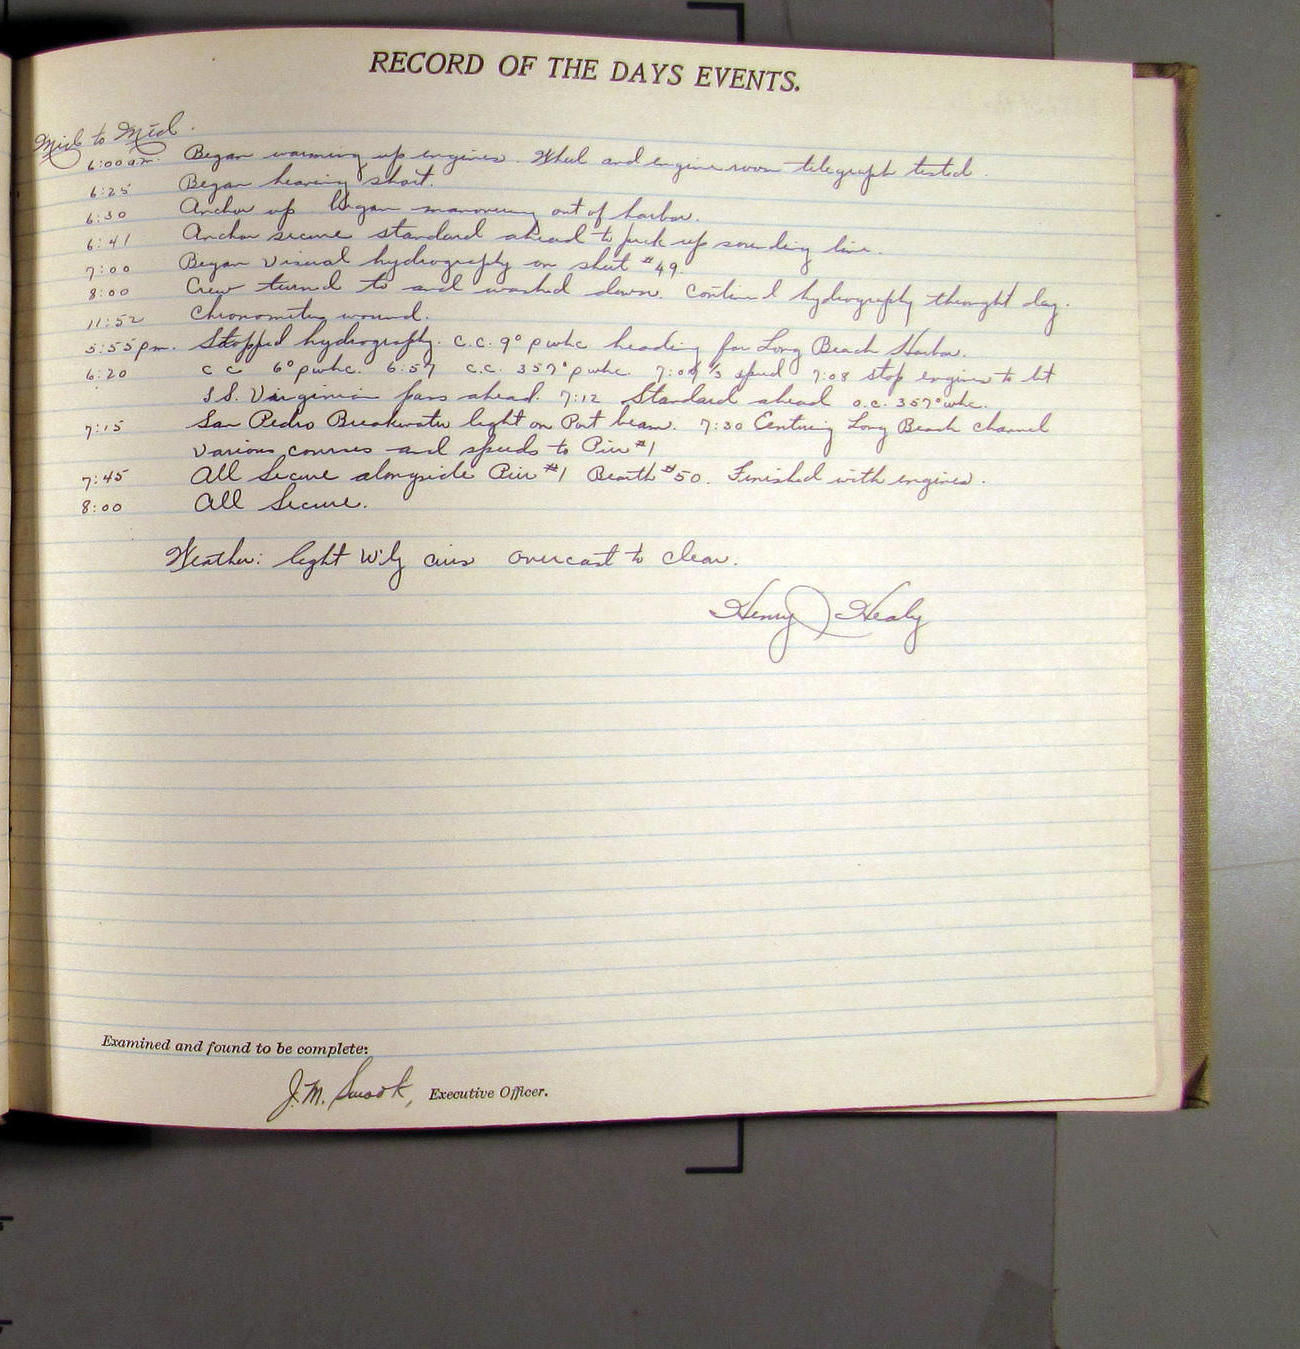 RECORD OF THE DAYS EVENTS.
Mid to Mid.
6:00 a.m. Began warming up engines. Wheel and engine room telegraph tested.
6:25 Began heaving short.
6:30 Anchor up began manovering out of harbor.
6:41 Anchor secure standard ahead to pick up sounding line.
7:00 Began visual hydrography on sheet #49
8:00 Crew turned to and washed down. Continued hydrography throught day.
11:52 Chronometer wound.
5:55 pm. Stopped hydrography. c.c. 9° pwhc heading for Long Beach Harbor.
6:20 c c 6° pwhc. 6:57 c.c. 357° pwhc. 7:07 1/3 speed 7:08 stop engines to let
S.S. Virginian pass ahead. 7:12 Standard ahead o.c. 357° whc.
7:15 San Pedro Breakwater light on Port beam. 7:30 Entering Long Beach channel
various courses and speeds to Pier #1
7:45 All Secure alongside Pier #1 Bearth #50. Finished with engines.
8:00 All Secure.
Weather: light W'ly airs overcast to clear.
Henry J Healy
Examined and found to be complete:
J. M. Smook, Executive Officer.